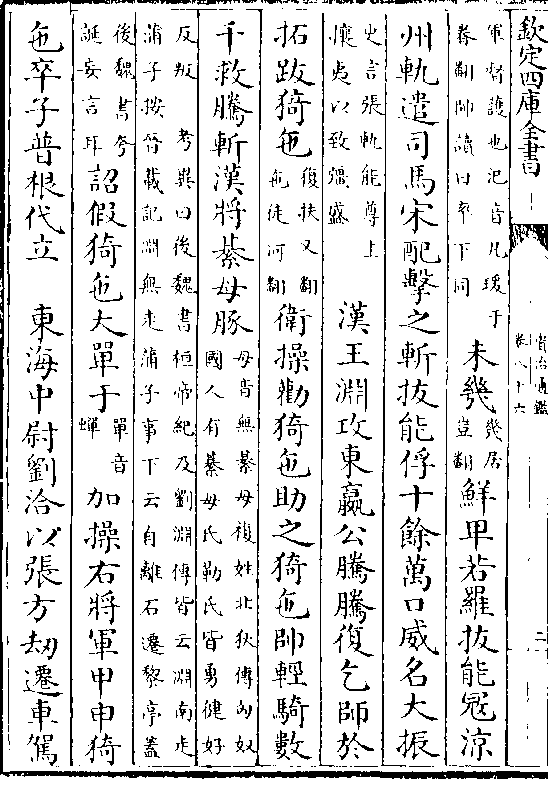 欽定四庫全書
資治通鑑
卷八十六
二
軍督護也汜音凡瑗于
眷翻帥讀曰率下同
未幾
幾居
豈翻
鮮卑若羅拔能冦涼
州軌遣司馬宋配擊之斬拔能俘十餘萬口威名大振
史言張軌能尊上
懷夷以致彊盛
漢王淵攻東嬴公騰騰復乞師於
拓跋猗㐌
復扶又翻
㐌徒河翻
衛操勸猗㐌助之猗㐌帥輕騎數
千救騰斬漢將綦毋豚
毋音無綦毋複姓北狄傳匈奴
國人有綦毋氏勒氏皆勇健好
反叛 考異曰後魏書桓帝紀及劉淵傳皆云淵南走
蒲子按晉載記淵無走蒲子事下云自離石遷黎亭蓋
後魏書夸
誕妄言耳
詔假猗㐌大單于
單音
蟬
加操右將軍甲申猗
㐌卒子普根代立 東海中尉劉洽以張方刼遷車駕